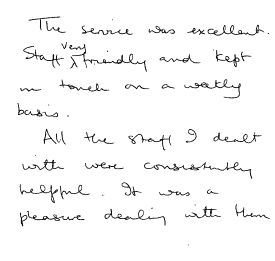 The service was excellent.
Staff very friendly and kept
in touch on a weekly
basis.
All the staff I dealt
with were consistently
helpful. It was a
pleasure dealing with them